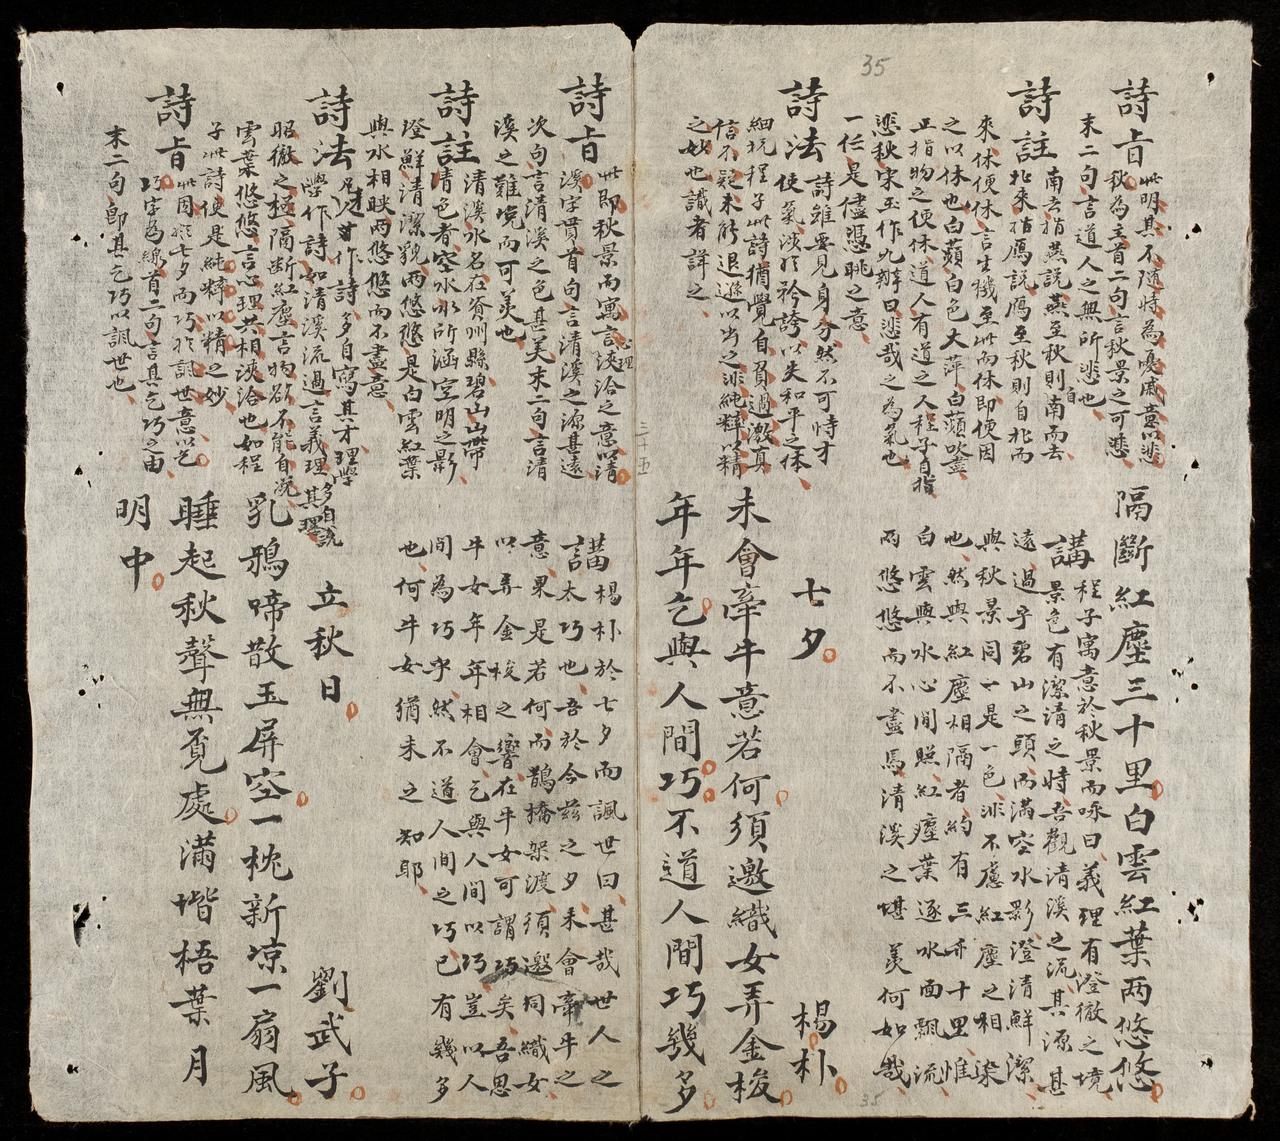 35
詩旨 此明其不隨時為憂戚意以悲
秋為主首二句言秋景之可悲
末二句言道人之無所悲也
詩註 南去指燕說燕至秋則南而去
北來指鴈說鴈至秋則自北而
來休便休言生機至此而休即便因
之以休也白蘋白色大萍白蘋吹盡
正指物之便休道人有道之人程子自指
悲秋宋玉作九辨曰悲哉之為氣也
一任是儘憑眺之意
詩法 詩雖要見身分然不可恃才
使氣淡於矜誇以失和平之体
細玩程子此詩猶覺自負過激真
信不疑未能退遜以出之非純粹以精
之妙也識者詳之
隔斷紅塵三十里白雲紅葉兩悠悠
講 程子寓意於秋景而咏曰義理有澄徹之境
景色有潔清之時吾觀清溪之流其源甚
遠過乎碧山之頭而滿空水影澄清鮮潔
與秋景同一是一色非不慮紅塵之相染
也然與紅塵相隔者約有三十里惟
白雲與水心閒照紅塵葉逐水面飄流
兩悠悠而不盡焉清溪之堪羡何如哉
七夕 楊朴
未會牽牛意若何須邀織女弄金梭
年年乞與人間巧不道人間巧幾多
三十五
35
詩旨 此即秋景而寓言心理浹洽之意以清
溪字貫首句言清溪之源甚遠
次句言清溪之色甚美末二句言清
溪之難境而可羡也
詩註 清溪水名在資州縣碧山山帶
清色者空水水所涵空明之影
澄鮮清潔貌兩悠悠是白雲紅葉
與水相映兩悠悠而不盡意
詩法 凡才作詩多自寫其才理學多自說其理
學作詩如清溪流過言義理
昭徹之極隔斷紅塵言物欲不能自汎
雲葉悠悠言心理共相浹洽也如程
子此詩便是純粹以精之妙
詩旨 此因於七夕而巧於諷世意以乞
巧字為綱首二句言其乞巧之由
末二句即其乞巧以諷世也
講 楊朴於七夕而諷世曰甚哉世人之
太巧也吾於今茲之夕未會牽牛之
意果是若何而鵲橋架渡須邀同織女
以弄金梭之響在牛女可謂巧矣吾思
牛女年年相會乞與人間以巧豈以人
間為巧乎然不道人間之巧已有幾多
也何牛女猶未之知耶
立秋日 劉武子
乳鴉啼散玉屏空一枕新凉一扇風
睡起秋聲無覓處滿堦梧葉月
明中